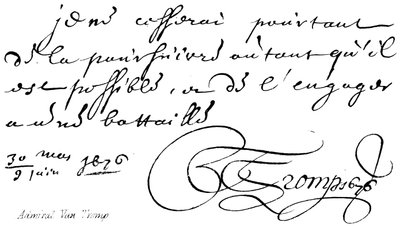 je ne cesseray pourtant
de la poursuivre autant qu'il
est possible, a de l'engager
a une battaille
30 may
9 Juin 1676
C Tromp 1676
Admiral Van Tromp